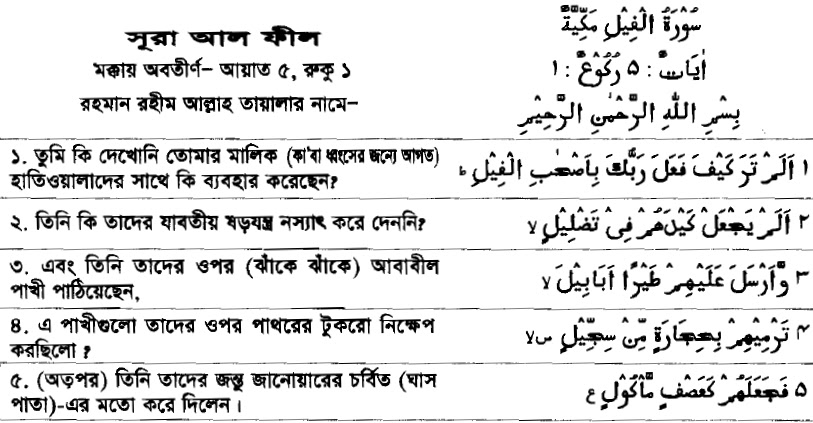 সূরা আল ফীল
মক্কায় অবতীর্ণ– আয়াত ৫, রুকু ১
রহমান রহীম আল্লাহ তায়ালার নামে–
سُوْرَةُ الْفِيْلِ مَكِّيَّةٌ
اٰيَاتٌ : ٥ رُكُوْعٌ : ١
بِسْمِ اللّٰهِ الرَّحْمٰنِ الرَّحِيْمِ
১. তুমি কি দেখোনি তোমার মালিক (কা'বা ধ্বংসের জন্যে আগত)
হাতিওয়ালাদের সাথে কি ব্যবহার করেছেন?
١ اَلَمْ تَرَ كَيْفَ فَعَلَ رَبُّكَ بِاَصْحٰبِ الْفِيْلِ ط
২. তিনি কি তাদের যাবতীয় ষড়যন্ত্র নস্যাৎ করে দেননি?
٢ اَلَمْ يَجْعَلْ كَيْدَهُمْ فِيْ تَضْلِيْلٍ لا
৩. এবং তিনি তাদের ওপর (ঝাঁকে ঝাঁকে) আবাবীল
পাখী পাঠিয়েছেন,
٣ وَّاَرْسَلَ عَلَيْهِمْ طَيْرًا اَبَابِيْلَ لا
৪. এ পাখীগুলো তাদের ওপর পাথরের টুকরো নিক্ষেপ
করছিলো ?
٤ تَرْمِيْهِمْ بِحِجَارَةٍ مِّنْ سِجِّيْلٍ س لا
৫. (অতপর) তিনি তাদের জন্তু জানোয়ারের চর্বিত (ঘাস
পাতা)-এর মতো করে দিলেন।
٥ فَجَعَلَهُمْ كَعَصْفٍ مَّاْكُوْلٍ ع